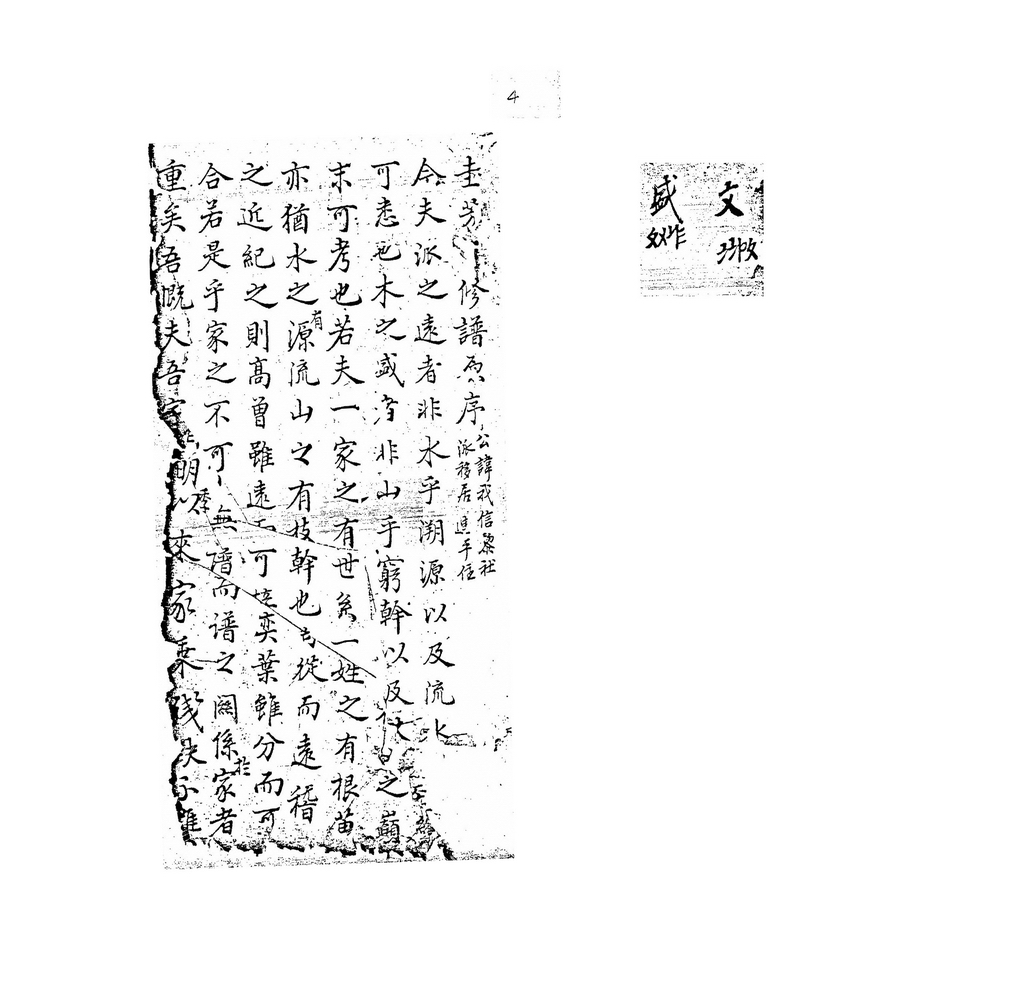 4
文
盛
圭芳修譜原序
公諱我信黎社
派移居連平住
今夫派之遠者非水乎溯源以及流水
可悉也木之盛者非山乎窮幹以及之巔
末可考也若夫一家之有世系一姓之有根苗
亦猶水之有源流山之有枝幹也從而遠稽
之近紀之則高曾雖遠而可奕葉雖分而可
合若是乎家之不可無譜而谱之関係於家者
重矣吾慨夫吾字明季以來家乘殘失